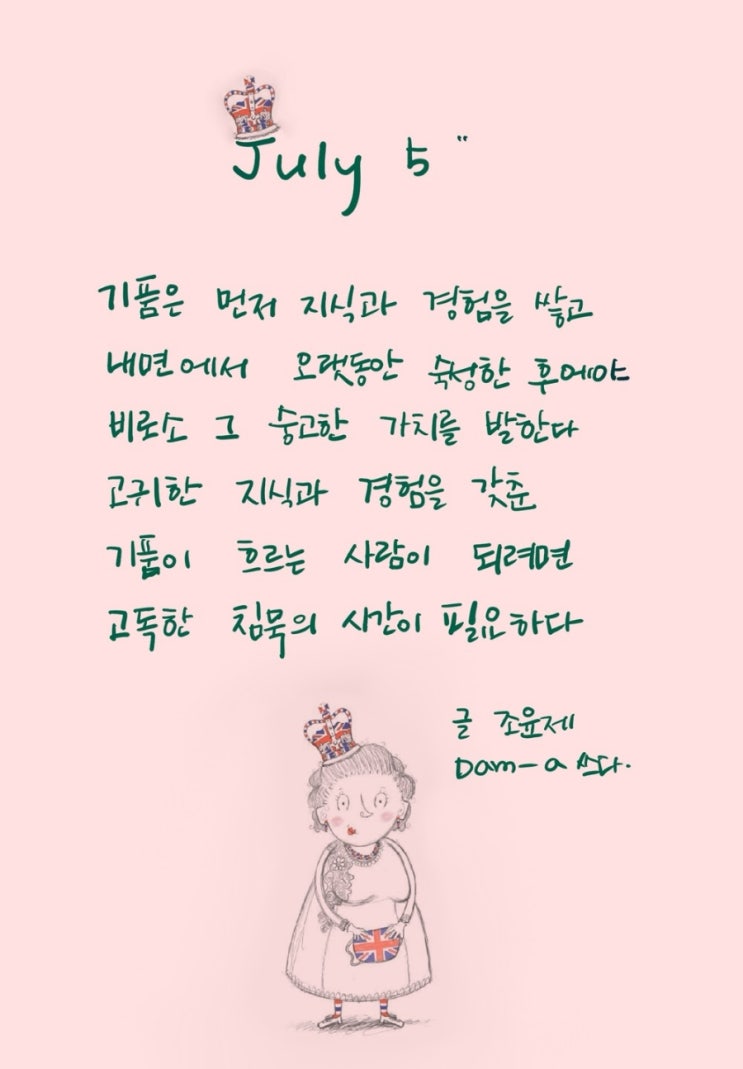 July 5"
기품은 먼저 지식과 경험을 쌓고
내면에서 오랫동안 숙성한 후에야
비로소 그 숭고한 가치를 발한다
고귀한 지식과 경험을 갖춘
기품이 흐르는 사람이 되려면
고독한 침묵의 시간이 필요하다
글 조윤제
Dam-a 쓰다.